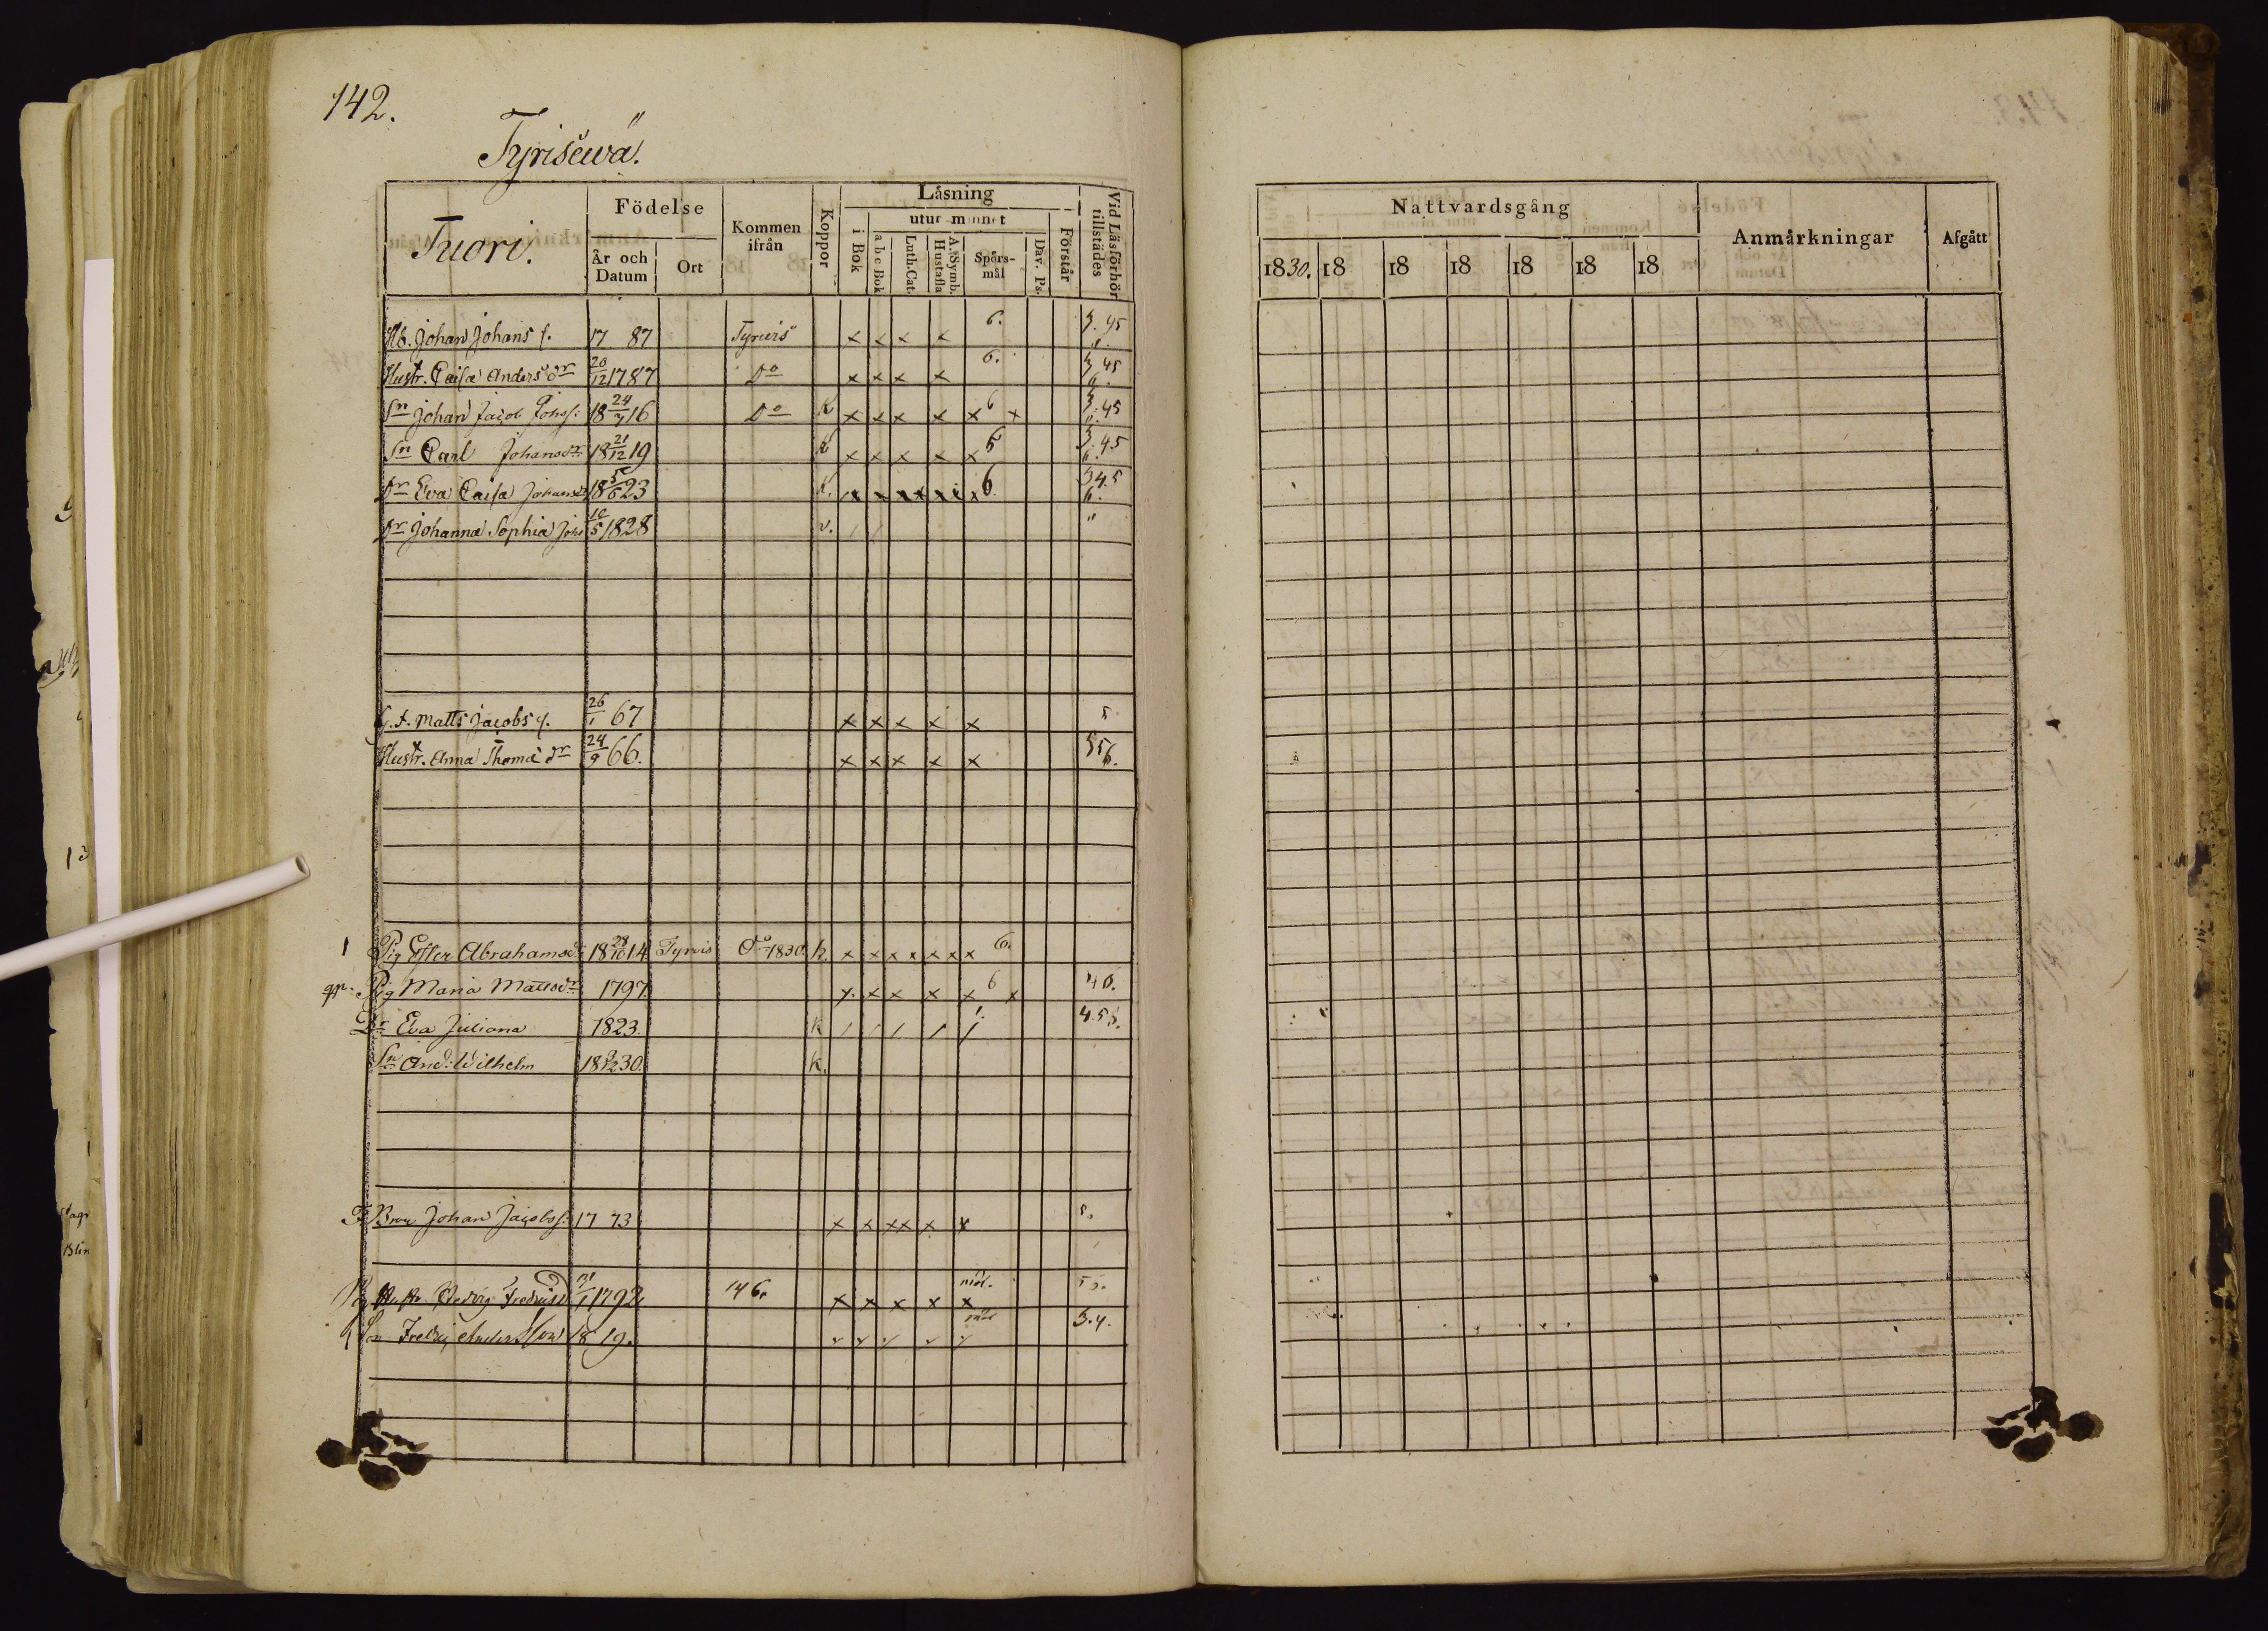 142.
Tyrisewä.
Tuori.
Födelse
År och Datum
Ort
Kommen ifrån
Koppor
Läsning
utur minnet
i Bok
a b c Bok
Luth. Cat.
A. Symb. Hustafla
Spörs-mål
Dav. Ps.
Förstår
Vid Läsförhör tillstådes
Hb. Johan Johans s. 17 87 Tyrvis x x x x 6. 3.45
Hustr. Caisa Anders dr 20/12 1787 Do x x x x 6. 3 45 6.
Sn Johan Jacob Johs s: 18 24/7 16 Do K x x x x x 6 x 3.45
Sn Carl Johansdr 18 21/12 19 K x x x x x 5 3.45 6.
Dr Eva Caisa Johansd 18 5/6 23 K. 6. 345 6.
Dr Johanna Sophia Johs 10/5 1828 v. / / "
G. t. Matts Jacobs s. 26/1 67 x x x x x 5
Hustr. Anna Thoma dr 24/9 66. x x x x x 556.
1 Pig Ester Abrahamsd. 18 28/10 14 Tyrvis Do 1830. k. x x x x x x x 6.
Pig Maria Mattsdr 1797. x x x x x 6 x 40.
Dr Eva Juliana 1823. K / / / / / 4.55.
Sn And. Wilhelm 18 /12 30. K.
F. Bror Johan Jacobs s. 17 73 x x xx x x 5.
Hedvig Fredrics 1792 146. x x x x x 5
Sn Fredric Andersson 18 19. 3.4.
Nattvardsgång
1830. 18 18 18 18 18 18
Anmärkningar
Afgått